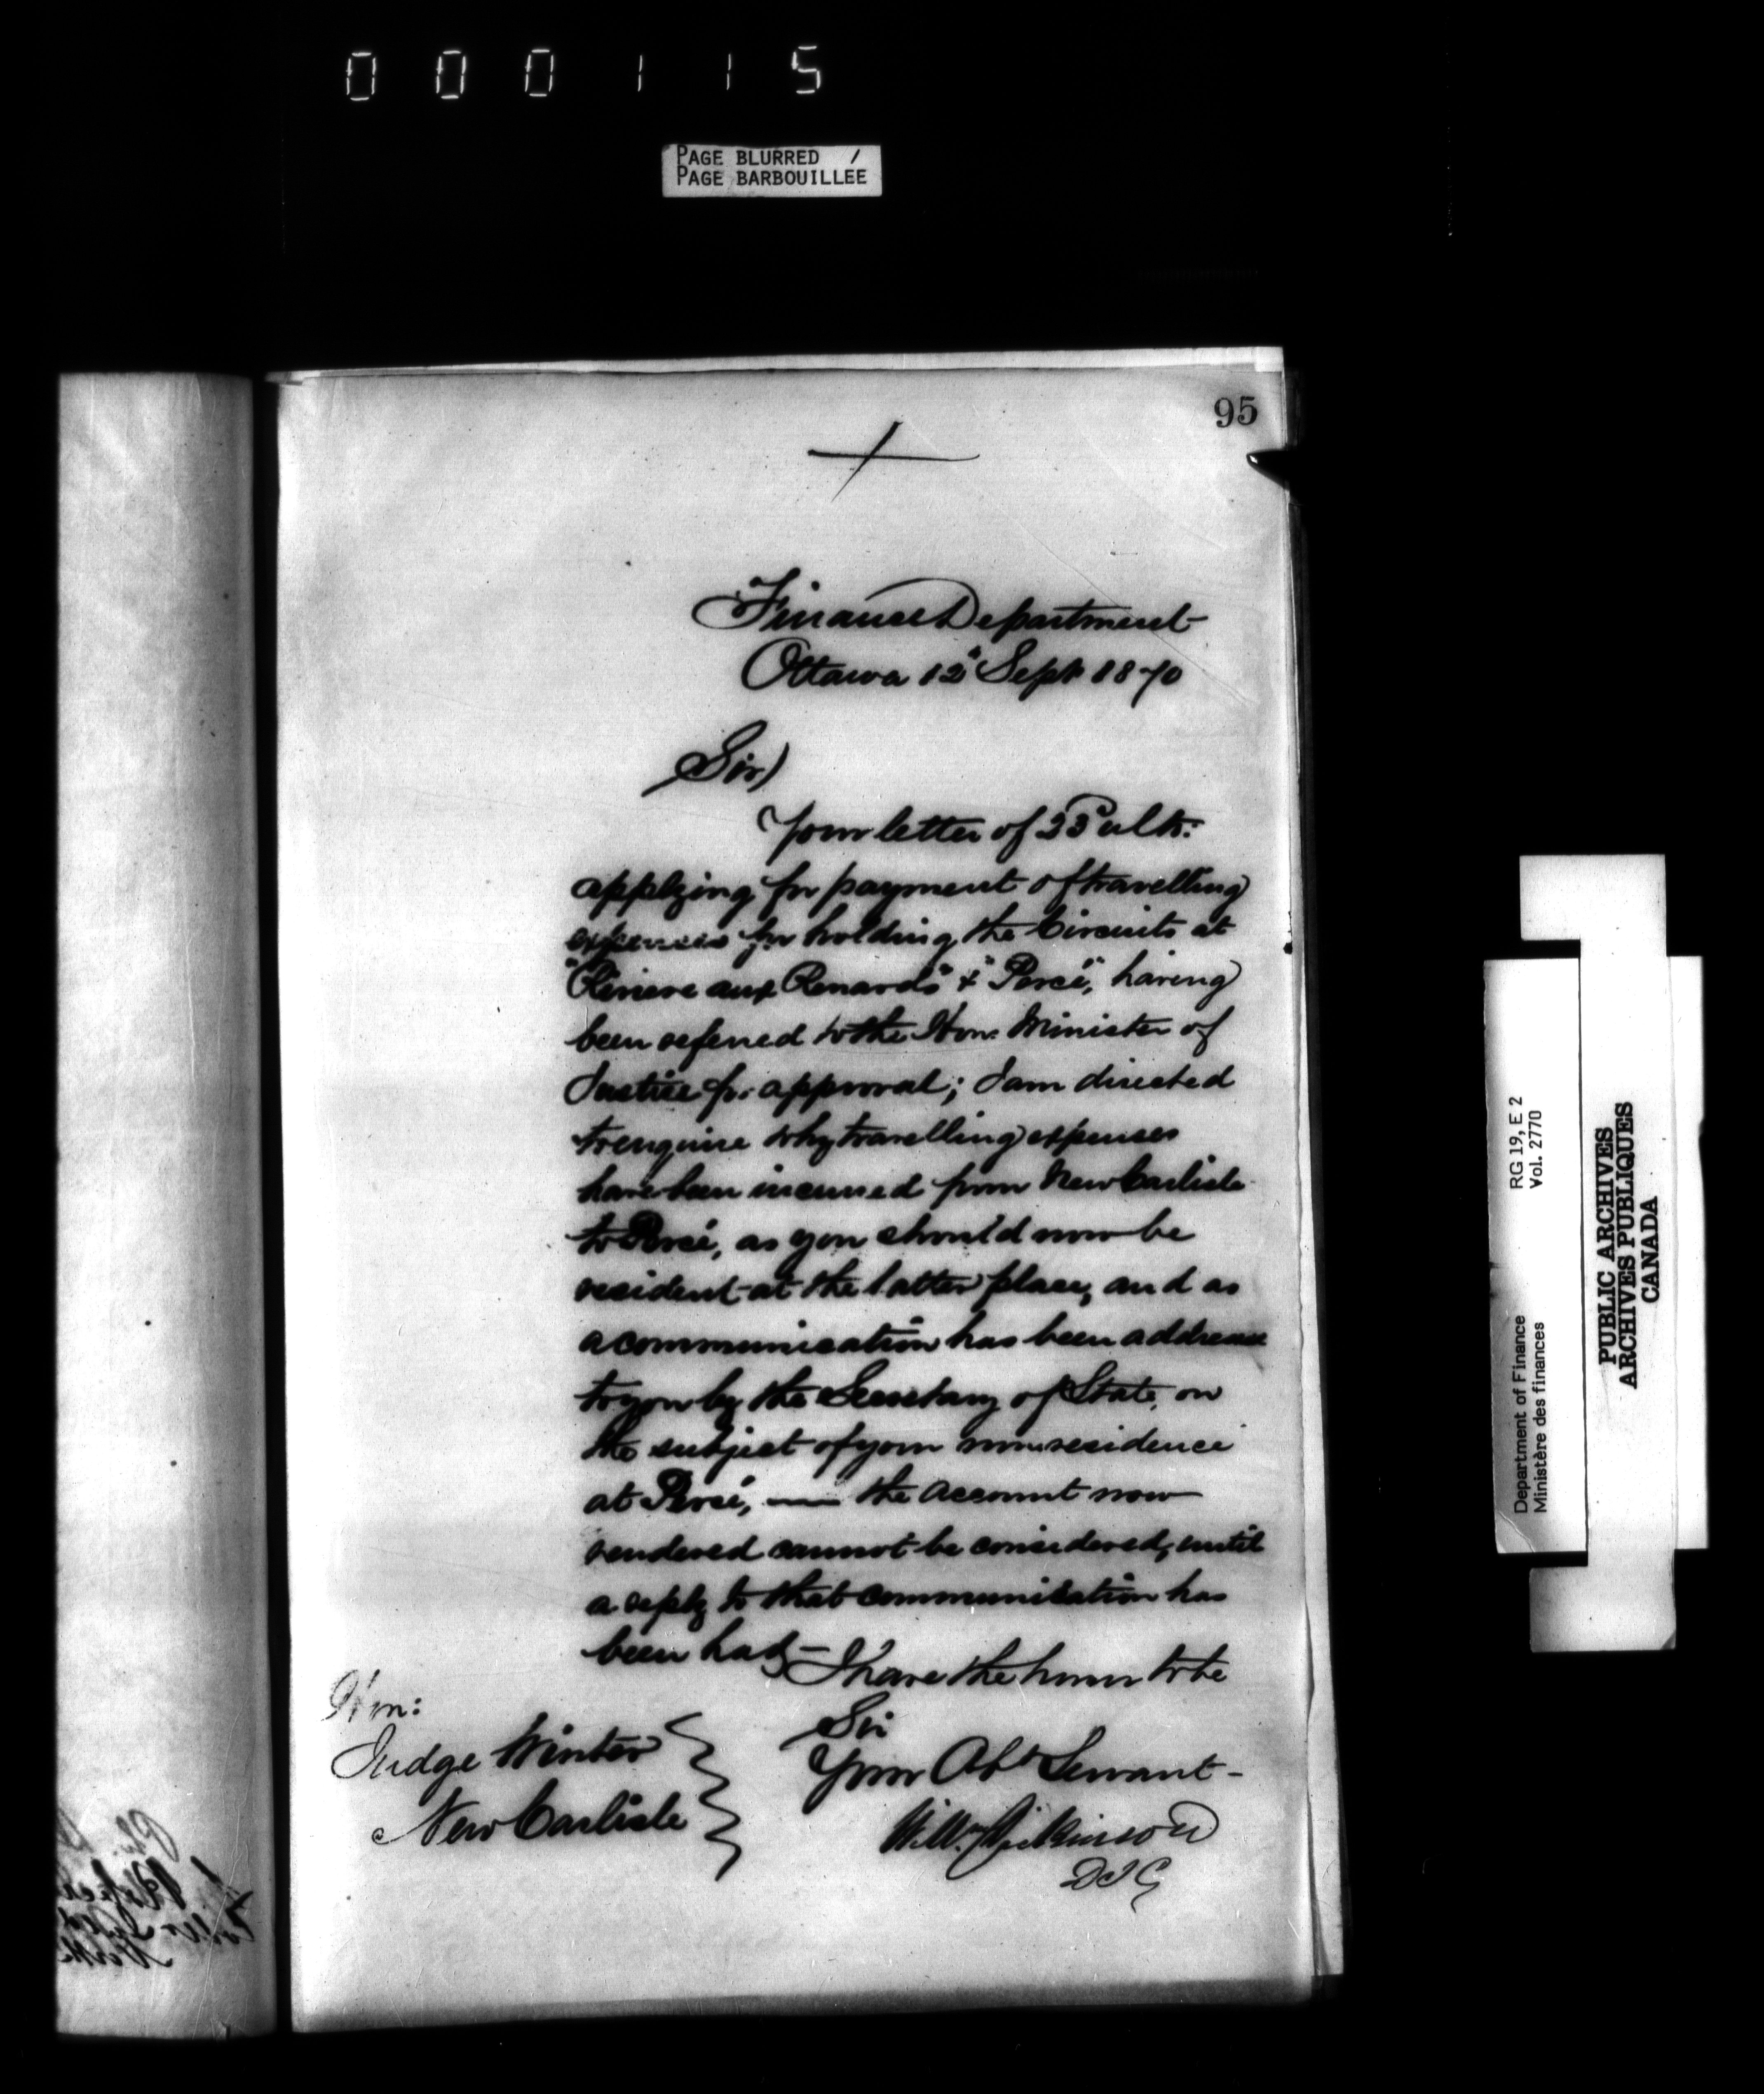 000115
PAGE BLURRED /
PAGE BARBOUILLÉE
95
Finance Department
Ottawa 12" Sept 1870
Sir,
Your letter of ulto:
applying for payment of travelling
expenses for holding the Circuits at
"Riviere aux Renards" & "Percé", having
been referred to the Hon. Minister of
Justice for approval; I am directed
to enquire why travelling expenses
have been incurred from New Carlisle
to Percé, as you should now be
resident at the latter place, and as
a communication has been addressed
to you by the Secretary of State, on
the subject of your non-residence
at Percé, — the account now
rendered cannot be considered, until
a reply to that communication has
been had —
I have the honor to be
Sir
Your Obt Servant -
Wm Dickinson
D I G
Hon:
Judge Winter
New Carlisle
RG 19, E 2
Vol. 2770
Department of Finance
Ministère des finances
PUBLIC ARCHIVES
ARCHIVES PUBLIQUES
CANADA